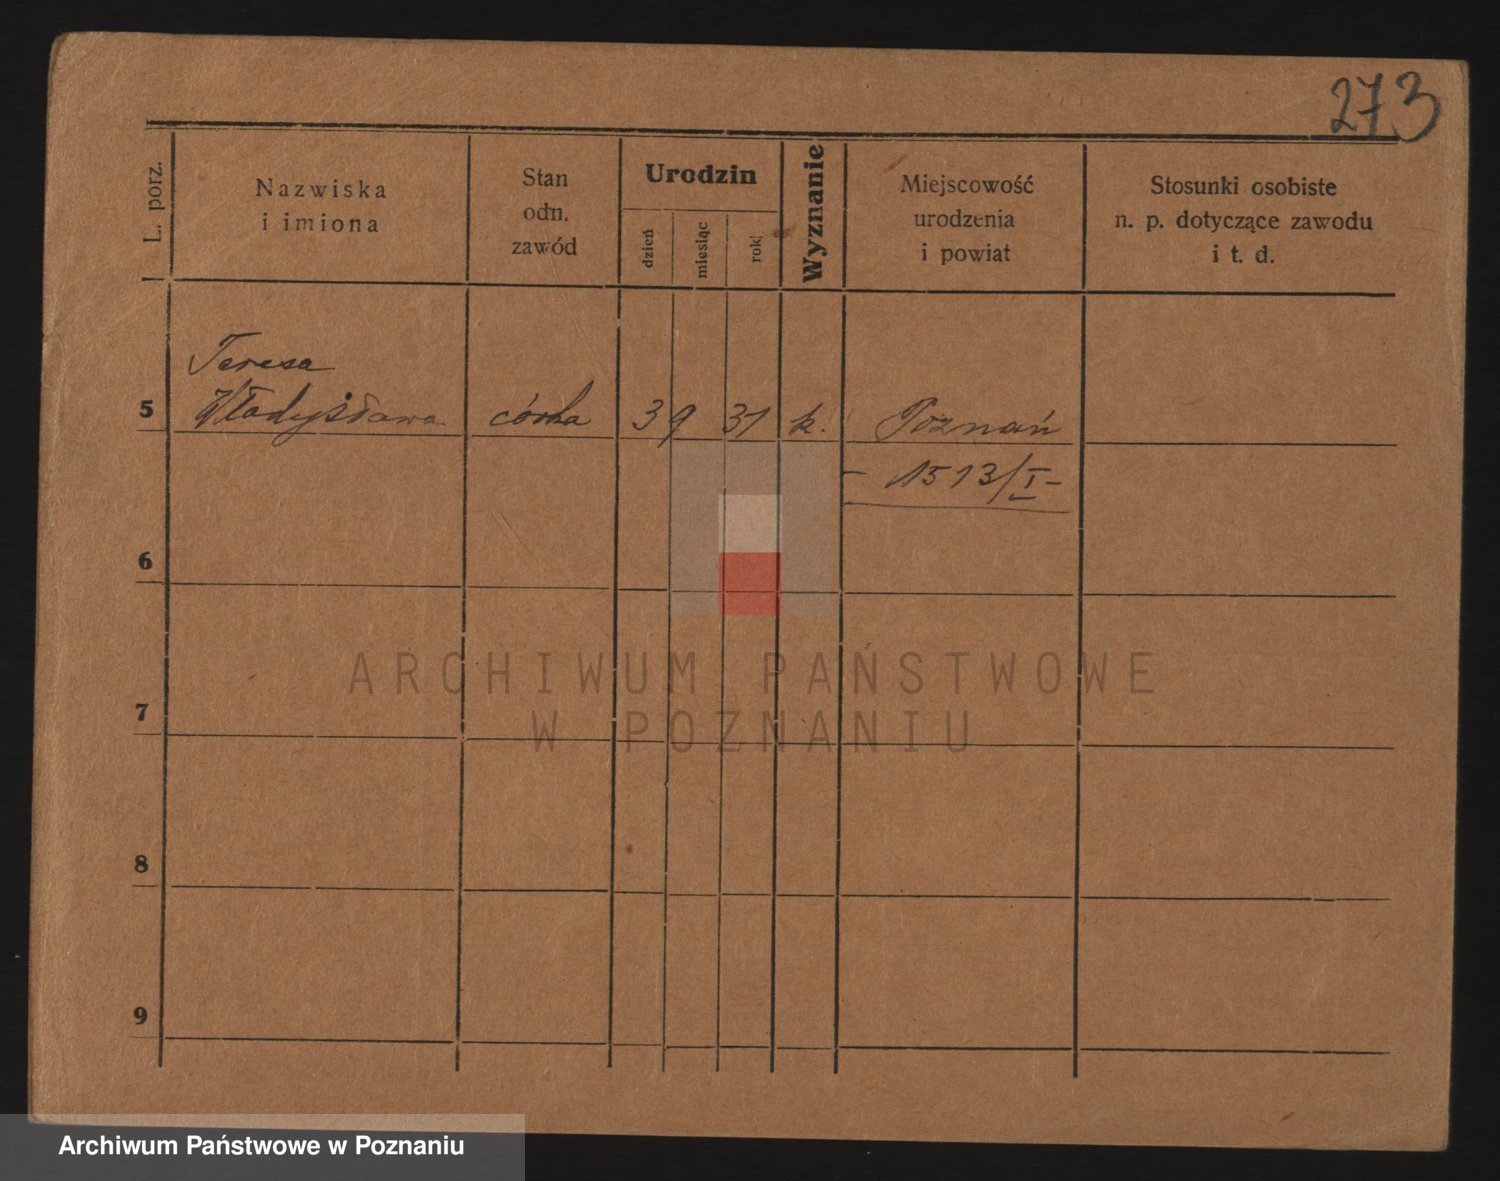 273
L. porz.
Nazwiska
i imiona
Stan
odn.
zawód
Urodzin
dzień
miesiąc
rok
Wyznanie
Miejscowość
urodzenia
i powiat
Stosunki osobiste
n. p. dotyczące zawodu
i t. d.
Teresa
5 Władysława córka 3 9 31 k. Poznań
- 1513/I -
6
ARCHIWUM PAŃSTWOWE
7
W POZNANIU
8
9
Archiwum Państwowe w Poznaniu